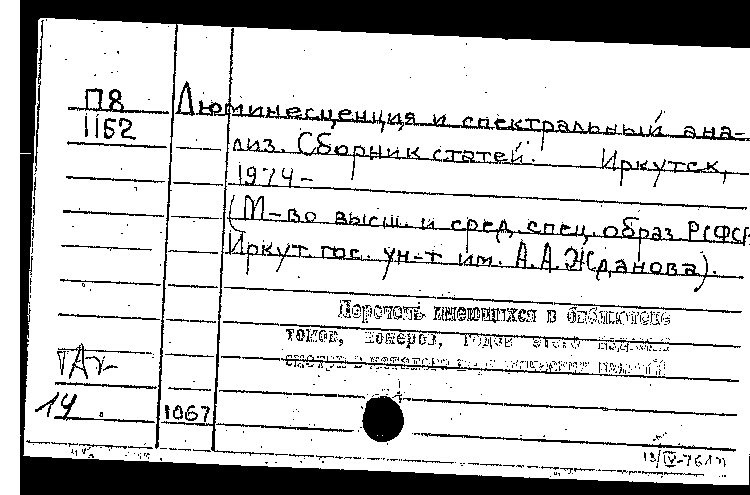 П8 Люминесценция и спектральный ана-
1152 лиз. Сборник статей. Иркутск,
1974-
(М-во высш. и сред. спец. образ. РСФСР
Иркут. гос. ун-т им. А.А.Жданова).
Перечень имеющихся в библиотеке
томов, номеров, годов этого издания
смотри в каталоге
14. 1067
13/IV-761